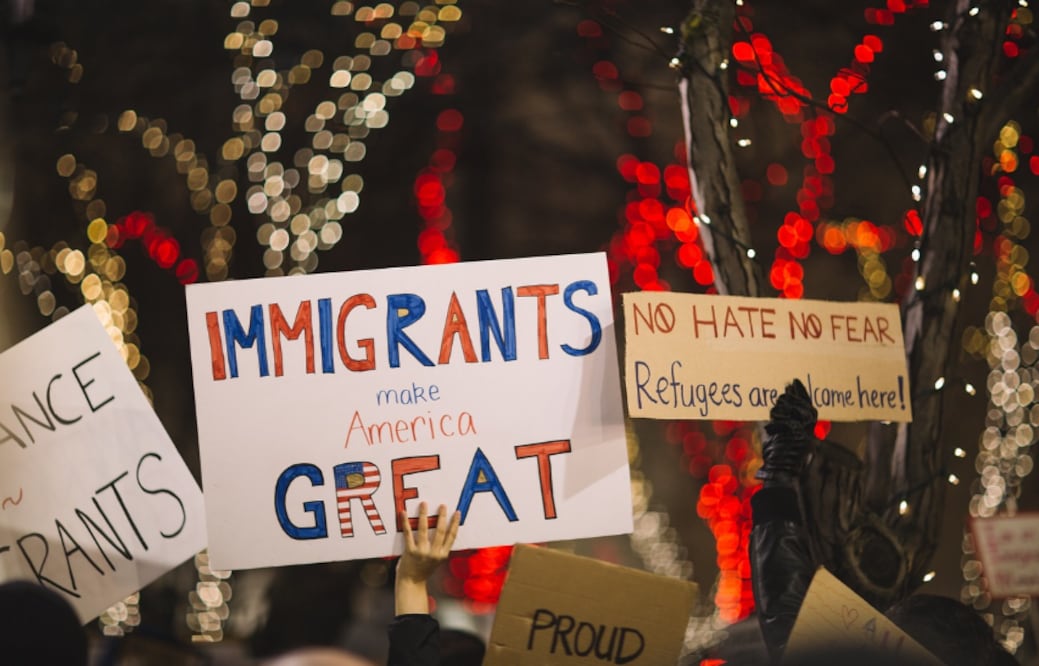 IMMIGRANTS
make
America
GREAT
NO HATE NO FEAR
Refugees are lcome here!
ANCE
RANTS
PROUD